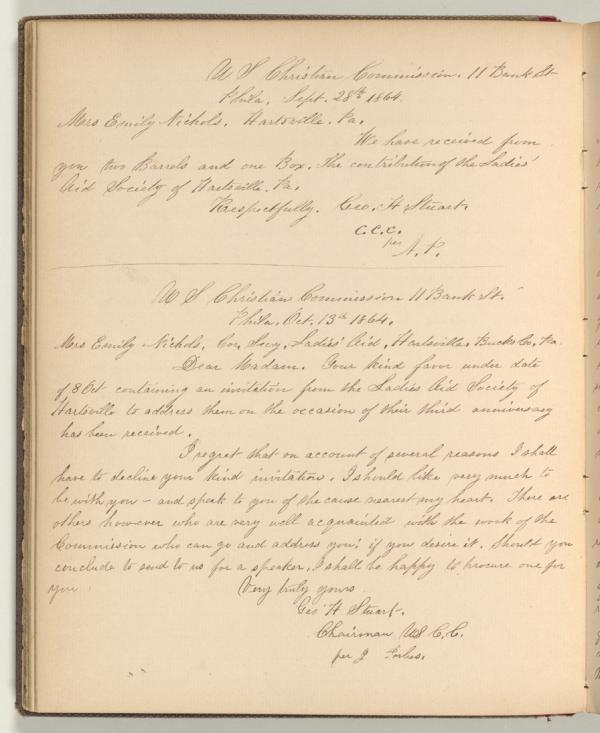 U S Christian Commission. 11 Bank St
Phila. Sept. 28th 1864.
Mrs Emily Nichols. Hartsville. Pa.
We have received from
you two Barrels and one Box. The contribution of the Ladies'
Aid Society of Hartsville. Pa.
Respectfully. Geo. H Stuart.
C.C.C.
per A. P.
U S Christian Commission 11 Bank St.
Phila. Oct. 13th 1864.
Mrs Emily Nichols, Cor, Secy, Ladies' Aid, Hartsville, Bucks Co, Pa.
Dear Madam. Your kind favor under date
of 8 Oct containing an invitation from the Ladies Aid Society of
Hartsville to address them on the occasion of their third anniversary
has been received.
I regret that on account of several reasons I shall
have to decline your kind invitation. I should like very much to
be with you - and speak to you of the cause nearest my heart. There are
others however who are very well acquainted with the work of the
Commission who can go and address you; if you desire it. Should you
conclude to send to us for a speaker, I shall be happy to procure one for
you.
Very truly yours
Geo H Stuart.
Chairman U S C. C.
per J Forbes.